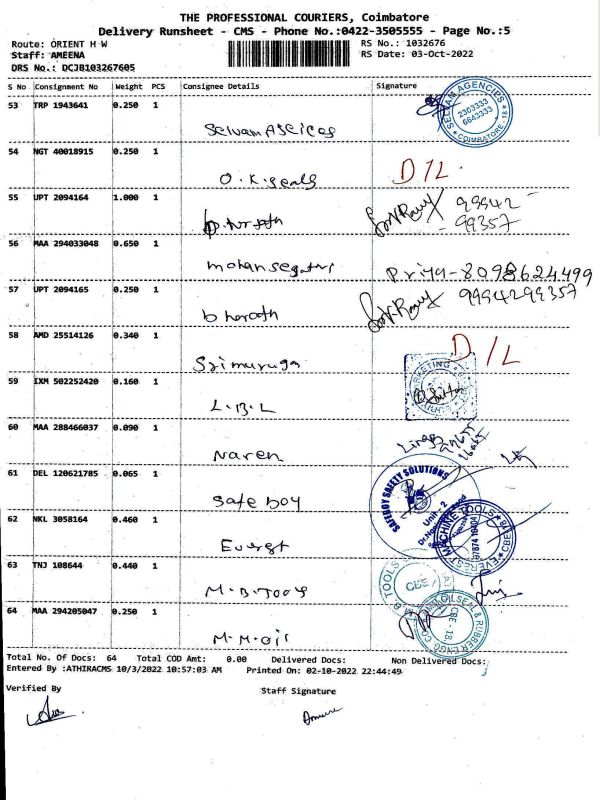 THE PROFESSIONAL COURIERS, Coimbatore
Delivery Runsheet - CMS - Phone No.:0422-3505555 - Page No.:5
Route: ORIENT H W
RS No.: 1032676
Staff: AMEENA
RS Date: 03-Oct-2022
DRS No.: DCJB103267605
S No Consignment No Weight PCS Consignee Details Signature
53 TRP 1943641 0.250 1
SELVAM AGENCIES 2303333 6643333 COIMBATORE-18
54 NGT 40018915 0.250 1
O.K.Seals D/L.
55 UPT 2094164 1.000 1
99942
99357
56 MAA 294033048 0.650 1
Priya-8098624499
57 UPT 2094165 0.250 1
bharath 9994299357
58 AMD 25514126 0.340 1
Srimuruga D/L
59 IXM 502252420 0.160 1
L.B.L MARKETING
60 MAA 288466037 0.090 1
Naren
61 DEL 120621785 0.065 1
Safe boy SAFEBOY SAFETY SOLUTIONS
Unit-2
62 NKL 3058164 0.460 1
Everest EVEREST MACHINE TOOLS
63 TNJ 108644 0.440 1
M.B.Tools B. TOOLS CBE
64 MAA 294205047 0.250 1
M.M.oil OILSEAL & RUBBER ENGG CO CBE-18
Total No. Of Docs: 64 Total COD Amt: 0.00 Delivered Docs: Non Delivered Docs:
Entered By :ATHIRACMS 10/3/2022 10:57:03 AM Printed On: 02-10-2022 22:44:49
Verified By Staff Signature